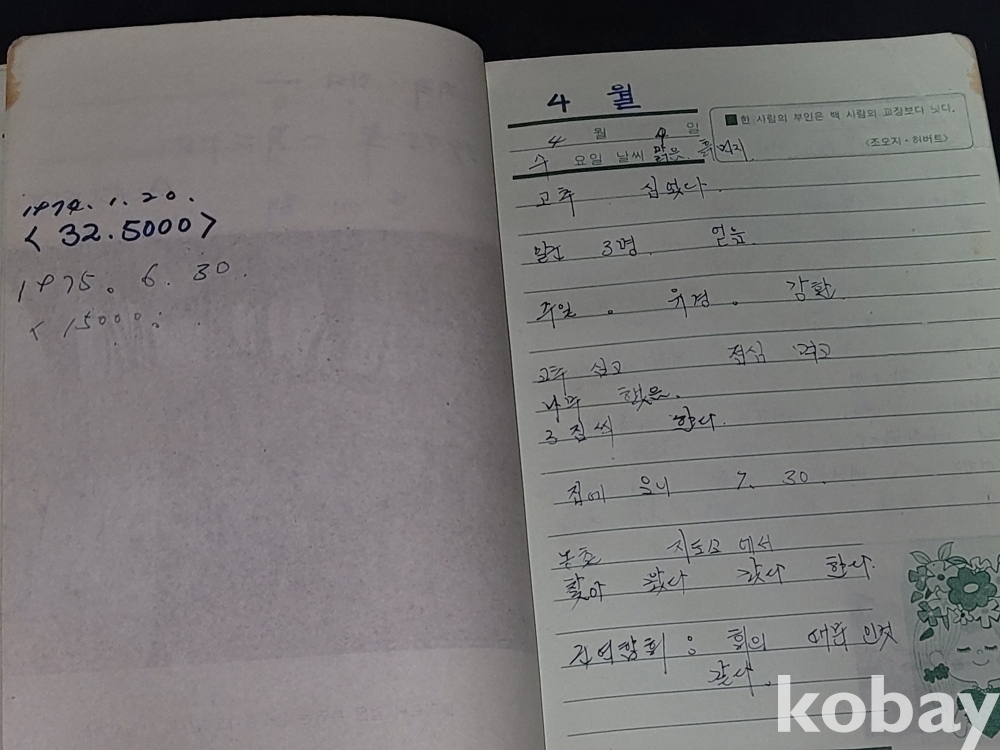 1974. 1. 20.
< 32.5000>
1975. 6. 30.
< 15000.
4 월
4 월 4 일
수 요일 날씨 맑음
■ 한 사람의 부인은 백 사람의 교장보다 낫다.
<조오지·허버트>
고추 심었다.
3명 얻음.
주일 . 위경 . 감환
고추 심고 점심 먹고
나무 했음.
3짐씩 한다.
집에 오니 7. 30.
농촌 지도소에서
찾아 왔다 갔다 한다.
회의 때문 인것
같다.
kobay